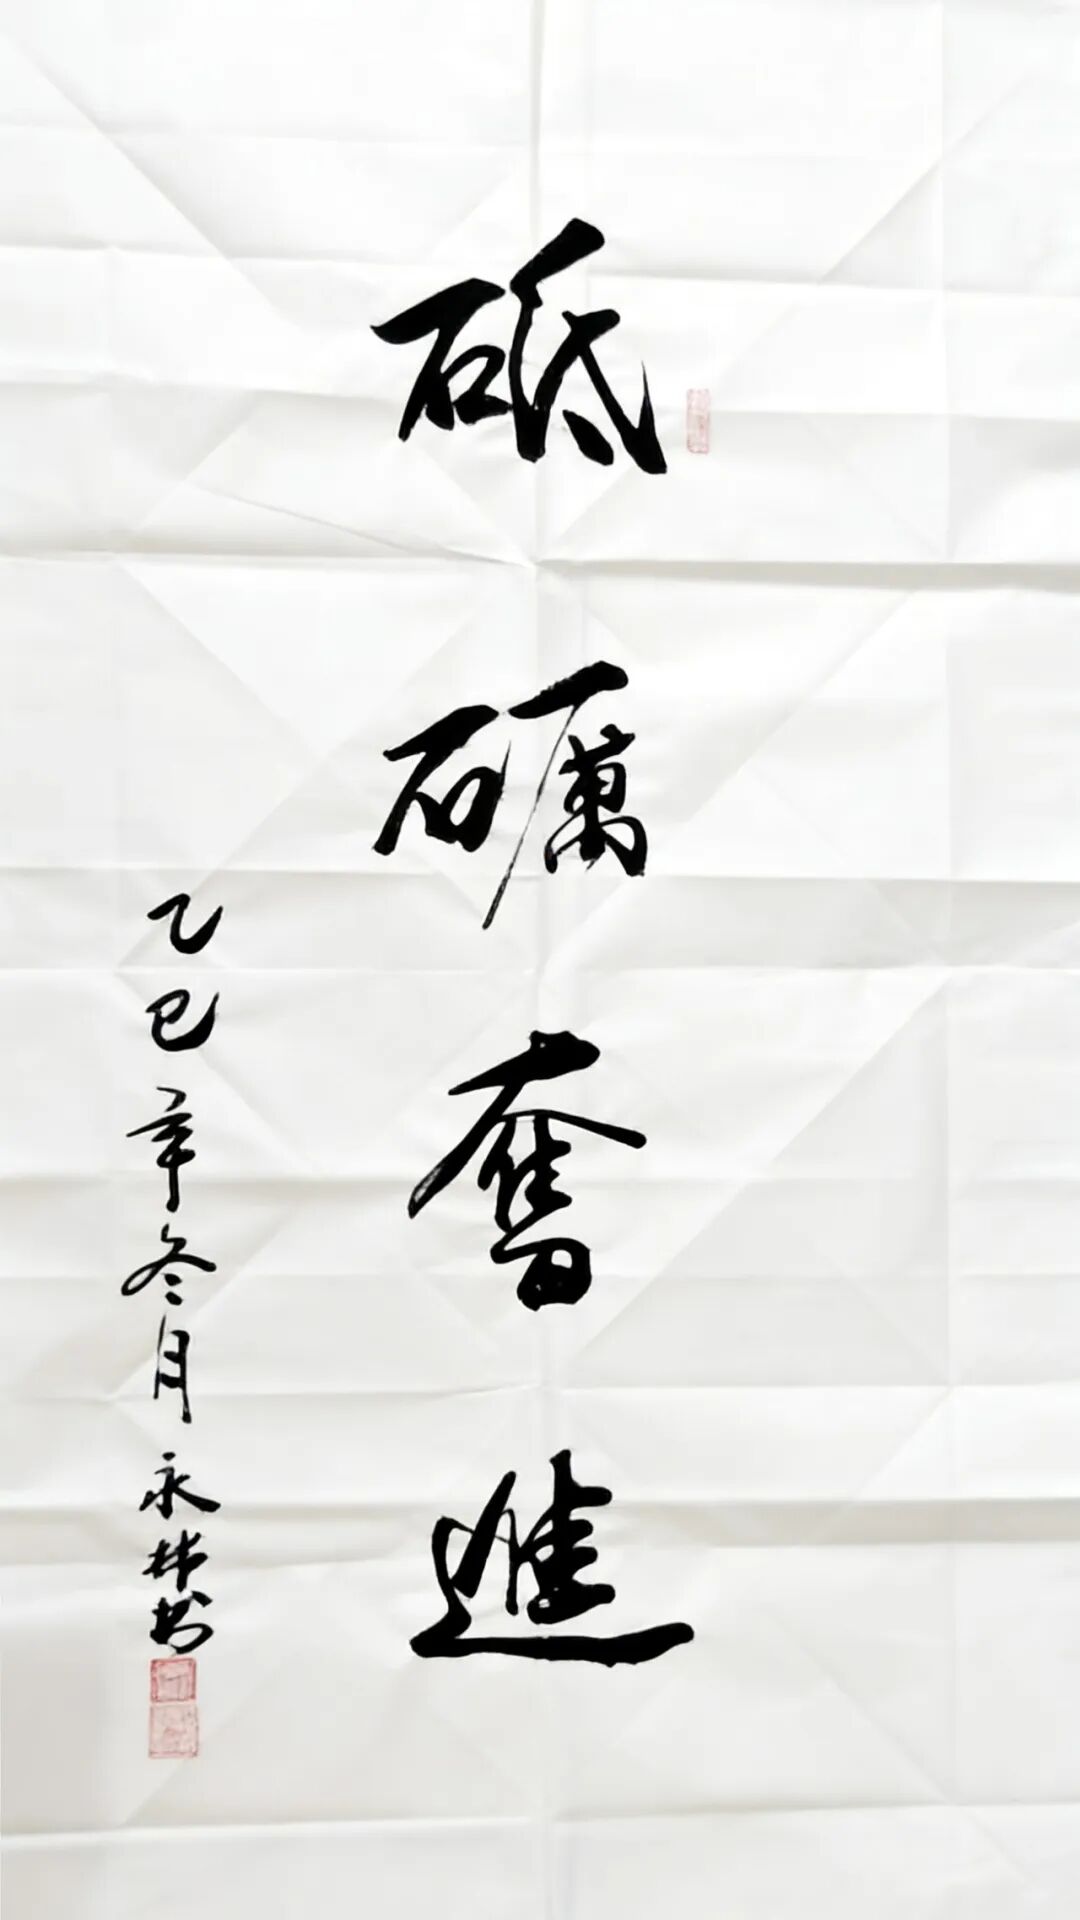 砥礪奮進
乙巳年冬月永林书